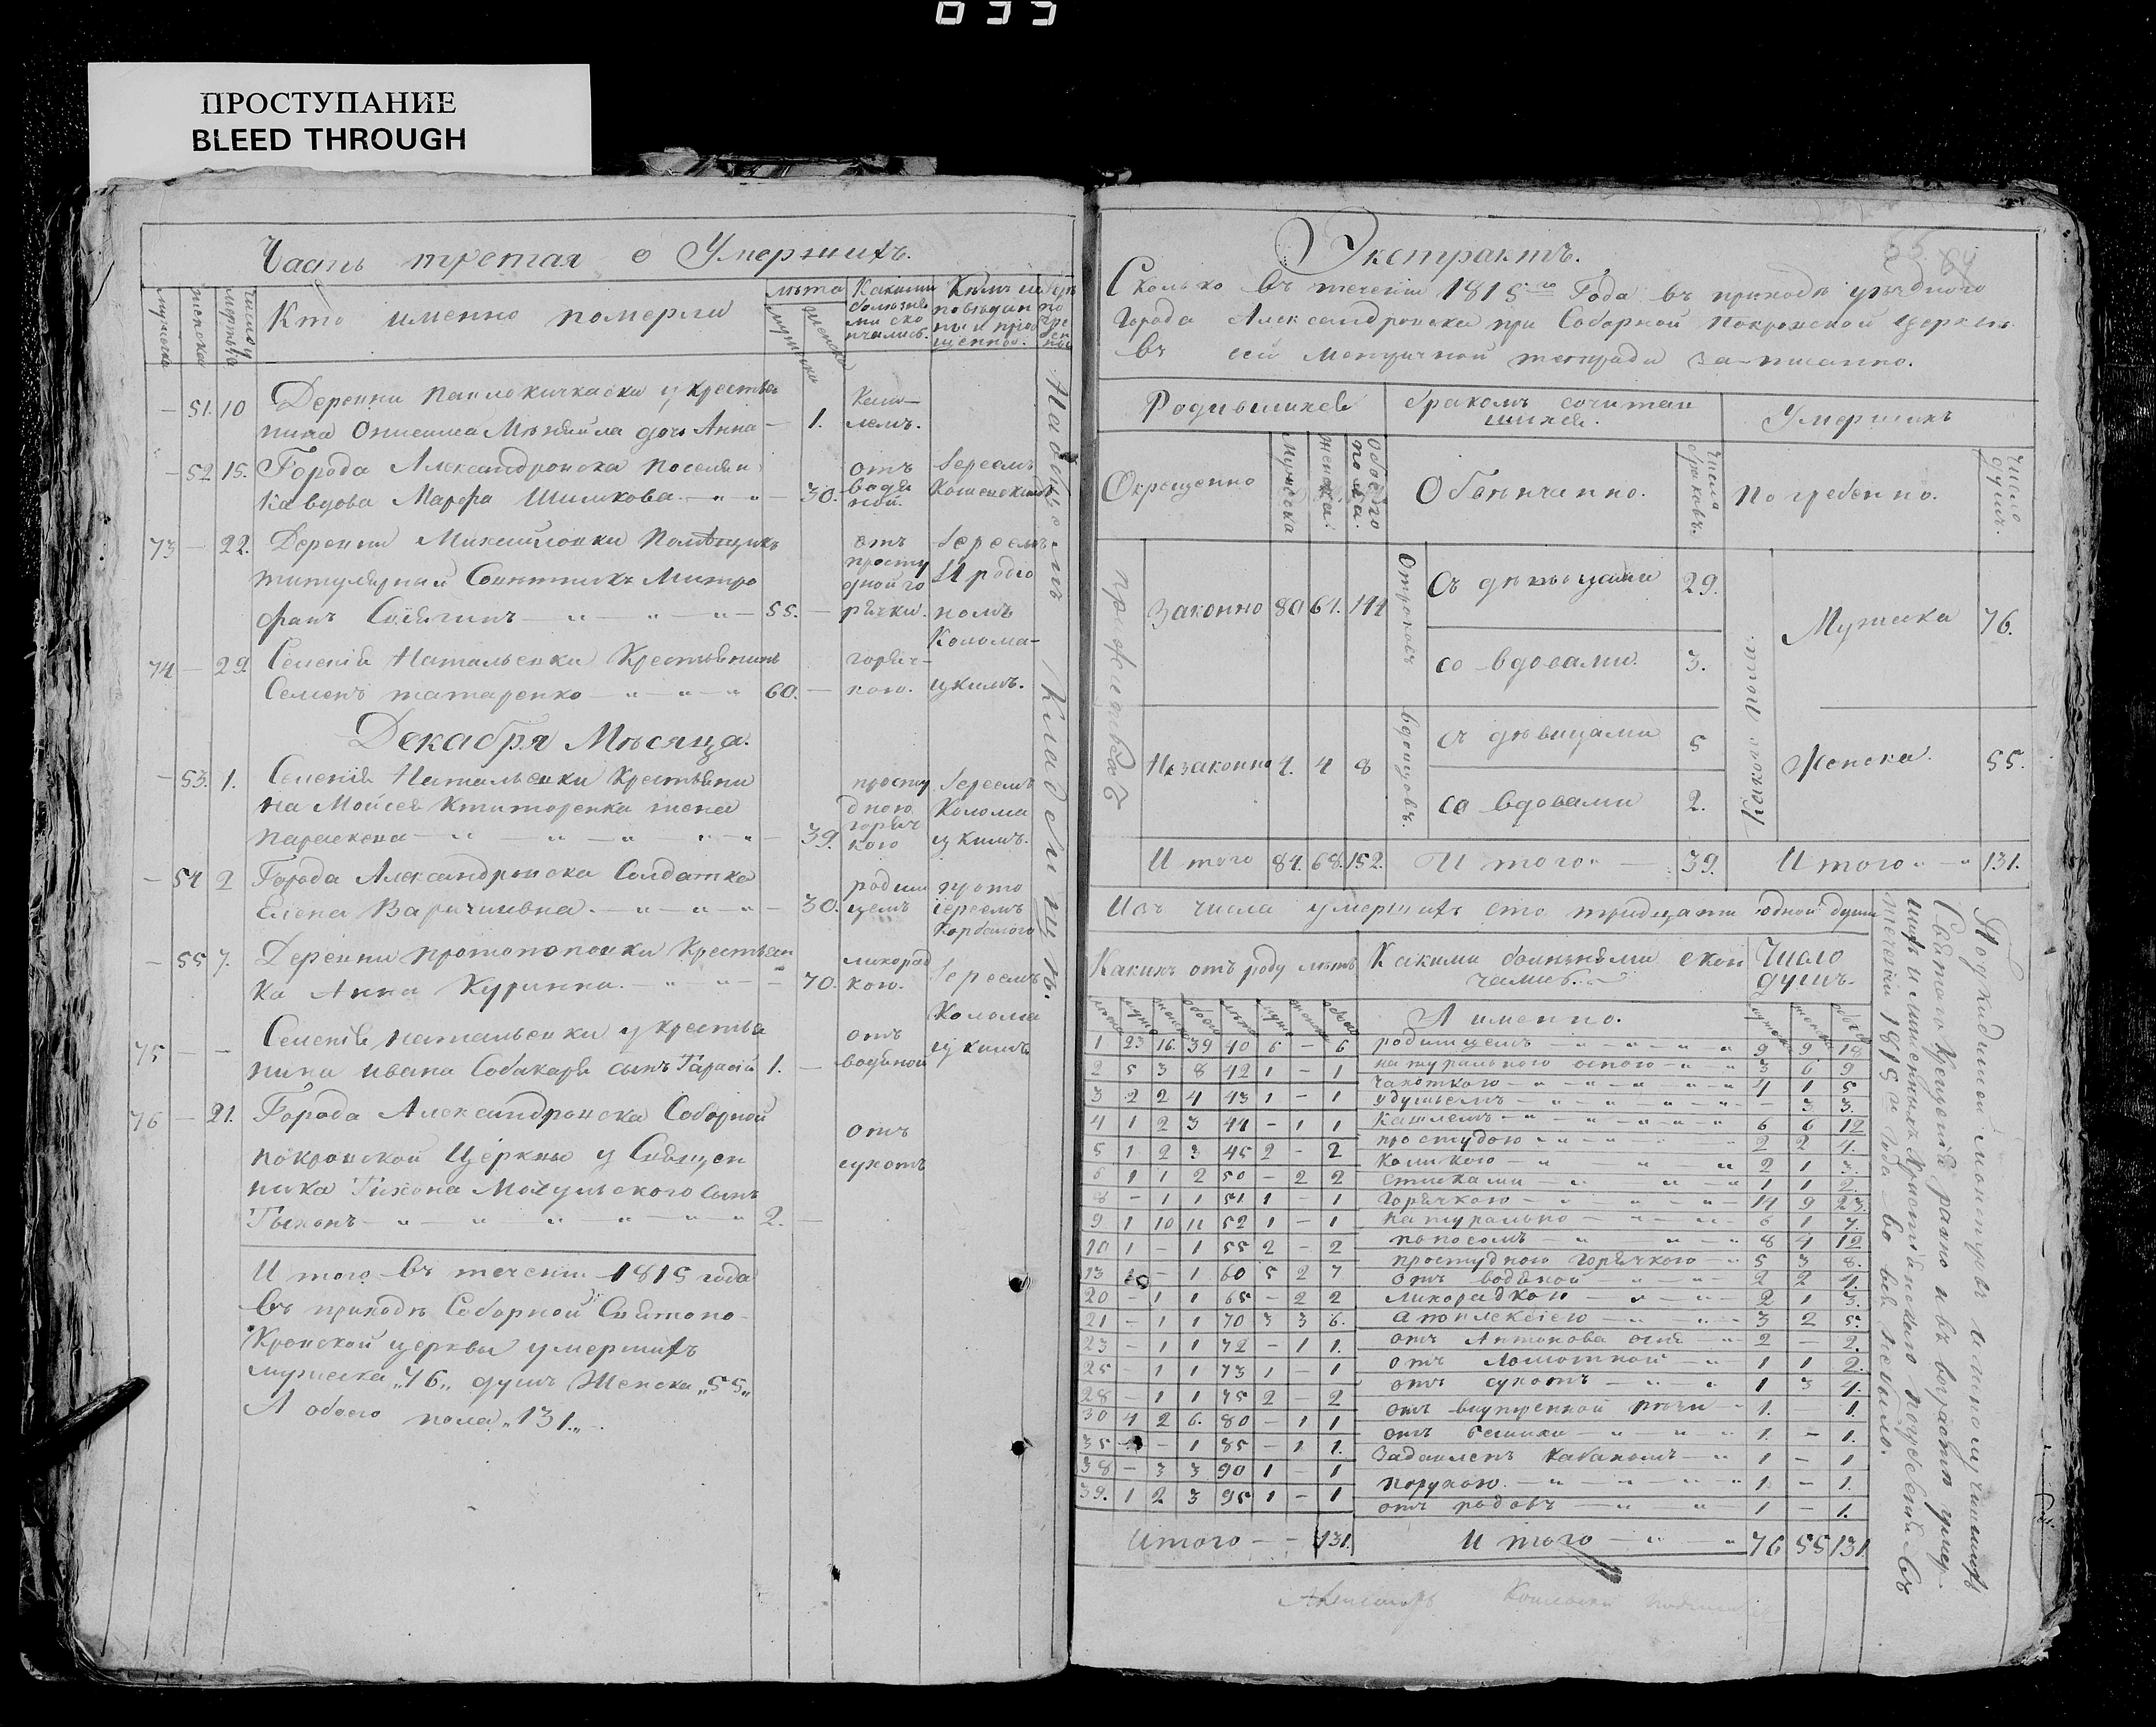 033
ПРОСТУПАНИЕ
BLEED THROUGH
Часть третая о Умершихъ.
мужеска
женска
число мертвы
Кто именно померли
лѣта
мужеска
женска
Какими болѣзнями скончались.
Кѣмъ исповѣданы и приобщенны.
Где погребены
— 51. 10 Деревни Павлокичкаски у крестья
нина Онисима Мѣняйла дочь Анна — 1. Кашлемъ.
— 52 15. Города Александровска поселян
ка вдова Марфа Шишкова — 30. отъ водяной. Іереемъ
73 — 22. Деревни Михайловки Помѣщикъ
титулярный Совѣтникъ Митро
фанъ — 55. — отъ простудной горячки. Іереемъ Иродіономъ Коломацкимъ.
74 — 29. Селенія Натальевки Крестьянинъ
Семенъ татаренко — 60. — горячкою.
Декабря Мѣсяца.
— 53. 1. Селенія Натальевки Крестьяни
на Мойсея Ктиторенка жена
параскева — 39. простудною горячкою Іереемъ Коломацкимъ.
— 54 2 Города Александровска Солдатка
Елена — 30. родимцемъ протоіереемъ
— 55 7. Деревни протопоповки Крестьян
ка Анна Куринна — 70. лихорадкою. Іереемъ Коломацкимъ
75 — — Селенія натальевки у крестья
нина ивана Собакаря сынъ Тарасій 1. — отъ водяной
76 — 21. Города Александровска Соборной
покровской Церквы у Священ
ника Тихона Сынъ
Тихонъ — 2. — отъ сухотъ
На общемъ Кладбищѣ.
Итого въ течении 1815 года
въ приходѣ Соборной Святопо-
кровской церквы умершихъ
мужеска „76„ душъ Женска „55„
А обоего пола „131.„
Экстрактъ.
Сколько въ течении 1815го Года въ приходѣ уѣздного
Города Александровска при Соборной Покровской Церкви
въ сей Метричной тетради записанно.
Родившихся
бракомъ сочитавшихся.
Умершихъ
Окрещенно
Мужеска
женска.
Обоего пола.
Обвѣнчанно.
Число браковъ.
Погребенно.
Число душъ.
Законно 80 64. 144
Незаконно 4. 4 8
Отроковъ
Съ дѣвицами 29.
со вдовами. 3.
вдовцовъ.
съ дѣвицами 5
со вдовами 2.
Мужеска 76.
Женска. 55.
Итого 84. 68. 152.
Итого 39.
Итого 131.
Изъ числа умершихъ сто тридцати одной души
Какихъ отъ роду лѣтъ
Какими болѣзнями скончались.
Число душъ.
А именно.
1 23 16. 39 40 6 — 6 родимцемъ 9 9 18
2 5 3 8 42 1 — 1 натуральною оспою 3 6 9
3 2 2 4 43 1 — 1 чахоткою 4 1 5
удушьемъ — 3 3.
4 1 2 3 44 — 1 1 Кашлемъ 6 6 12
5 1 2 3 45 2 — 2 простудою 2 2 4.
6 1 1 2 50 — 2 2 Коликою 2 1 3.
1 1 2.
8 — 1 1 51. 1 — 1 Горячкою 14 9 23.
9 1 10 11 52 1 — 1 натурально 6 1 7.
10 1 — 1 55 2 — 2 поносомъ 8 4 12
13 — 1 60 5 2 7 простудною Горячкою 5 3 8.
отъ водяной 2 2 4.
20 — 1 1 65 — 2 2 лихорадкою 2 1 3.
21 — 1 1 70 3 3 6. апоплексіею 3 2 5.
23 — 1 1 72 — 1 1. отъ Антонова огня 2 — 2.
25 — 1 1 73 1 — 1 отъ ломотной 1 1 2.
28 — 1 1 75 2 — 2 отъ сухотъ 1 3 4.
30 4 2 6. 80 — 1 1 отъ внутренной 1. — 1.
35 — 1 85 — 1 1. отъ 1. — 1.
38 — 3 3 90 1 — 1 Задавленъ Кабаномъ 1 — 1.
39. 1 2 3 95 1 — 1 1. — 1.
отъ родовъ 1 — 1.
Итого — 131.
Итого 76 55 131
Святого Крещенія равно и въ возрастѣ умер-
шихъ и лишенныхъ Христіянского погребенія въ
течении 1815го года во все небыло.